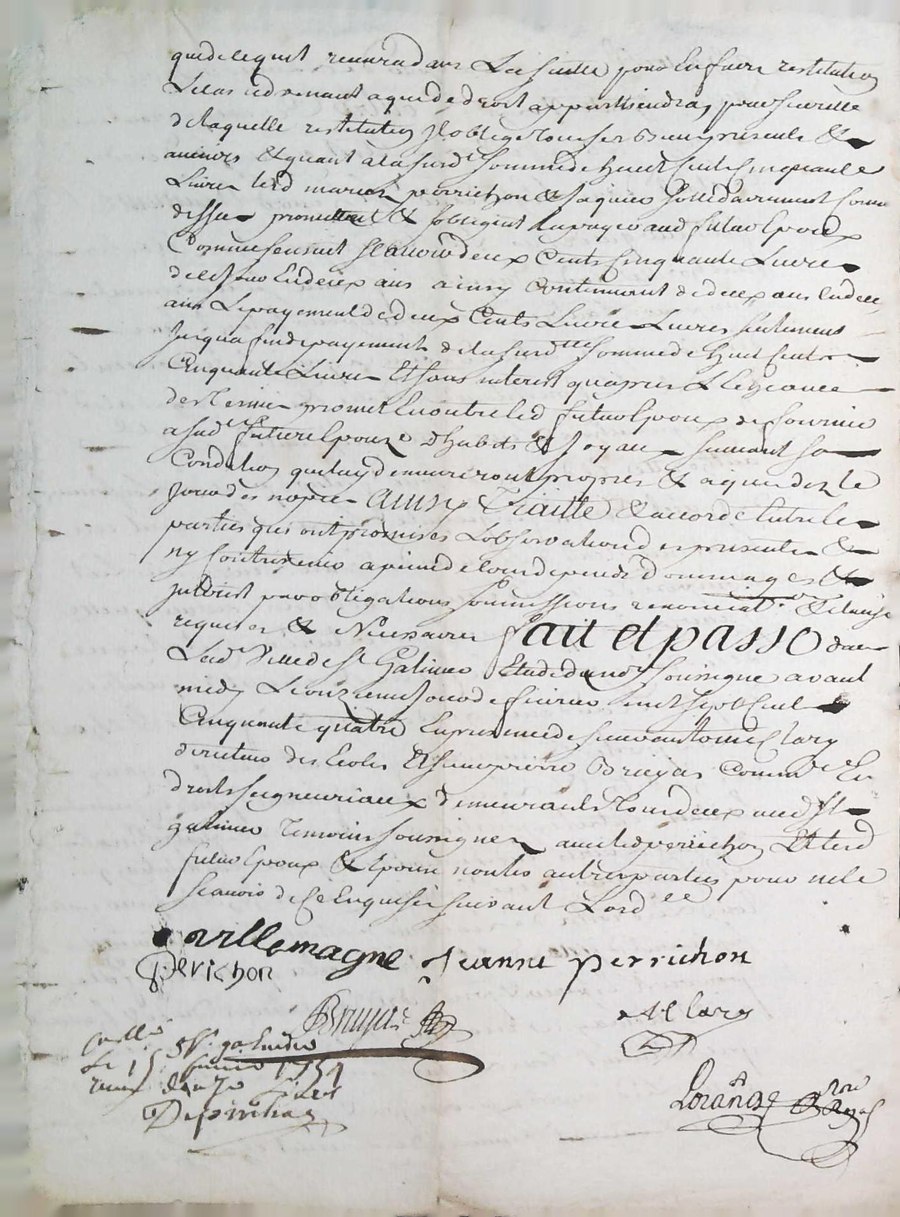 quide lequit recevra dans Lad. suitte pour En faire restitution
Le cas advenant a qui de droit appartiendra, pour seurette
de laquelle restitution Il oblige tous ses Biens presents &
avenirs & quant a la surd.te somme de huit Cents Cinquante
Livres lesd mariés perrichon & Jaquier sollidairement comme
dessus promettent & sobligent de payer aud futur Epoux
Comme sensuit scavoir deux Cents Cinquante Livres
En deux ans ainsy Continuant de deux ans En deux
ans Le payement de deux Cents Livres Livres seulement
Jusqua fin de payement de la surd.tte somme de huit Cents
Cinquante Livres Et sans interest quapres Lécheance
des termes promet En outre led futur Epoux de fournir
a sad.e future Epouze dhabits & Joyaux suivant sa
Condition qui luy demeureront propres & acquis dez le
Jour des nopces Ainsy Traitté & accordé Entre les
parties qui ont promises Lobservation des presentes &
ny Contrevenir a peine de tous depends Dommages &
Interest par obligations soumissions renonciat.s & clauses
requises & Necessaires fait et passé dans
Lad. Ville de St Galmier Etude du no.re soussigné avant
midy Le onzieme Jour de fevrier mil sept Cent
Cinquante quatre En presence de sieurs antoine Clary
directeur des Ecoles Et Jean pierre Bruyas Commi.re En
droits seigneuriaux demeurants tous deux aud St
galmier Temoins soussignez avec led perrichon Et lesd
futur Epoux & Epouse non les autres parties pour ne le
scavoir de ce Enquises suivant Lord.ce
Villemagne Jeanne perrichon
Perichon
Bruyas A Clary
Coll.é St galmier
Le 15 fevrier 1754
Lorance No.re Royal